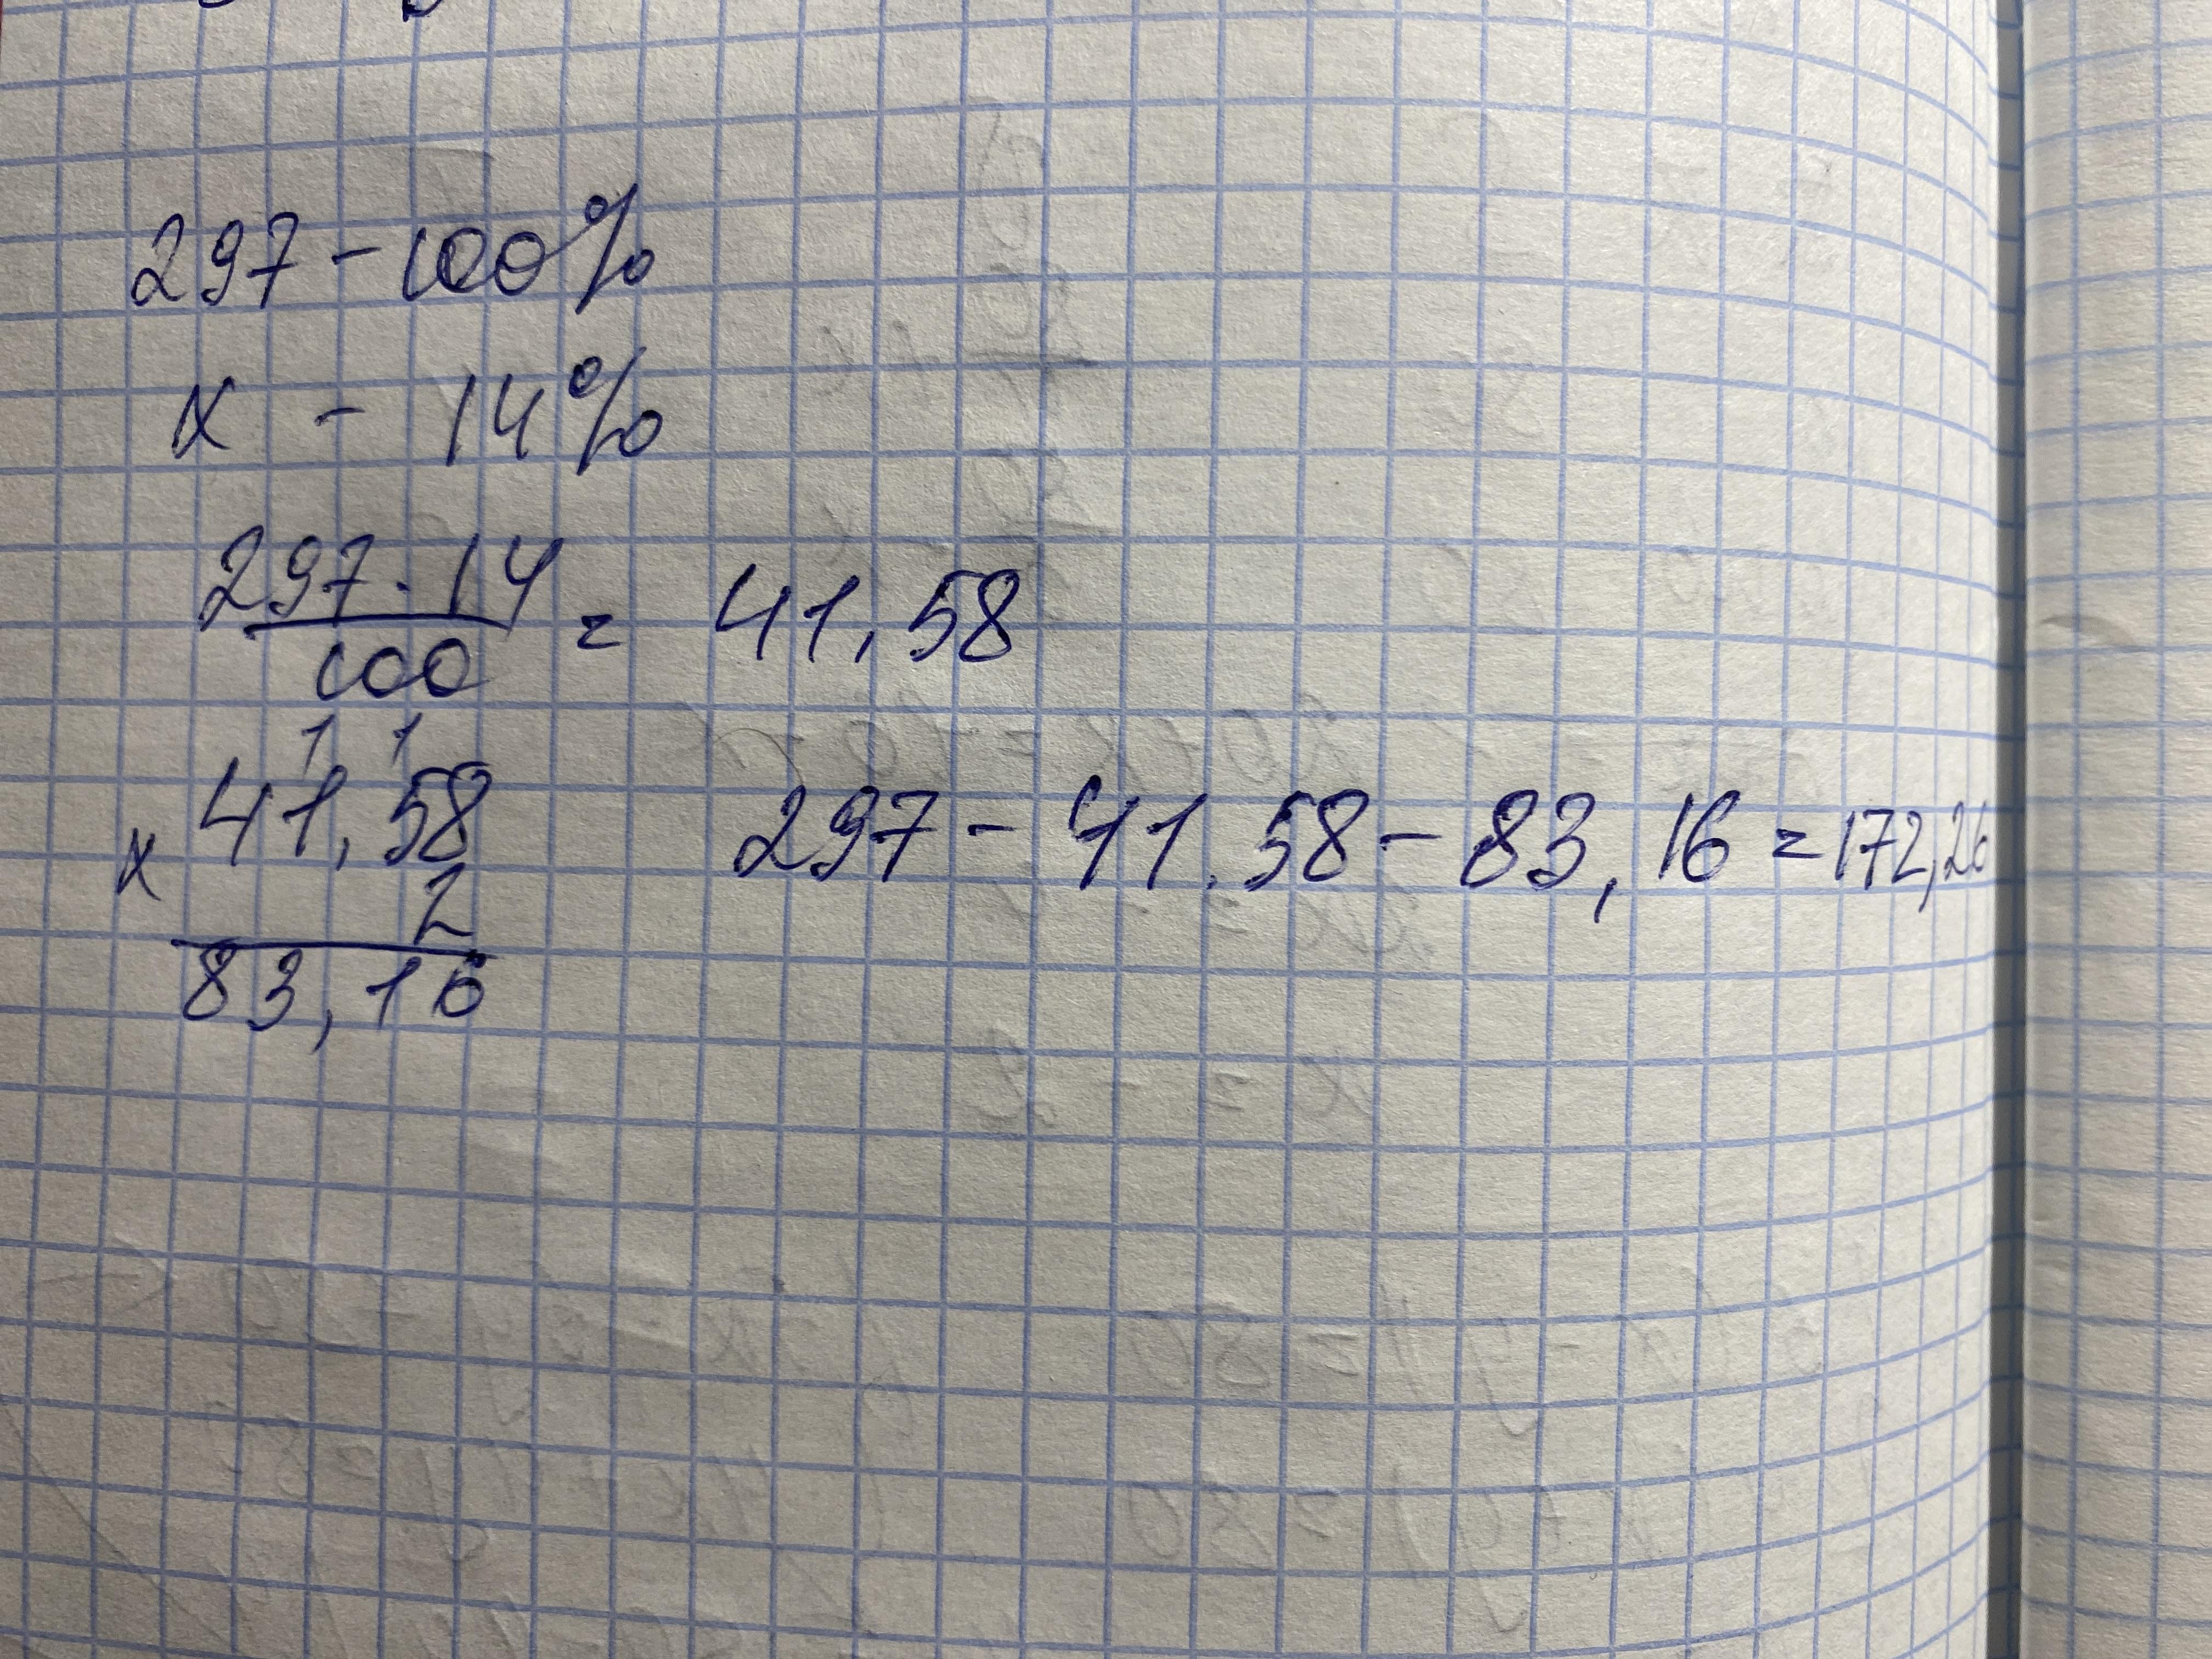 297 - 100%
x - 14%
297 · 14
100
= 41,58
1 1
41,58
x 2
83,16
297 - 41,58 - 83,16 = 172,26